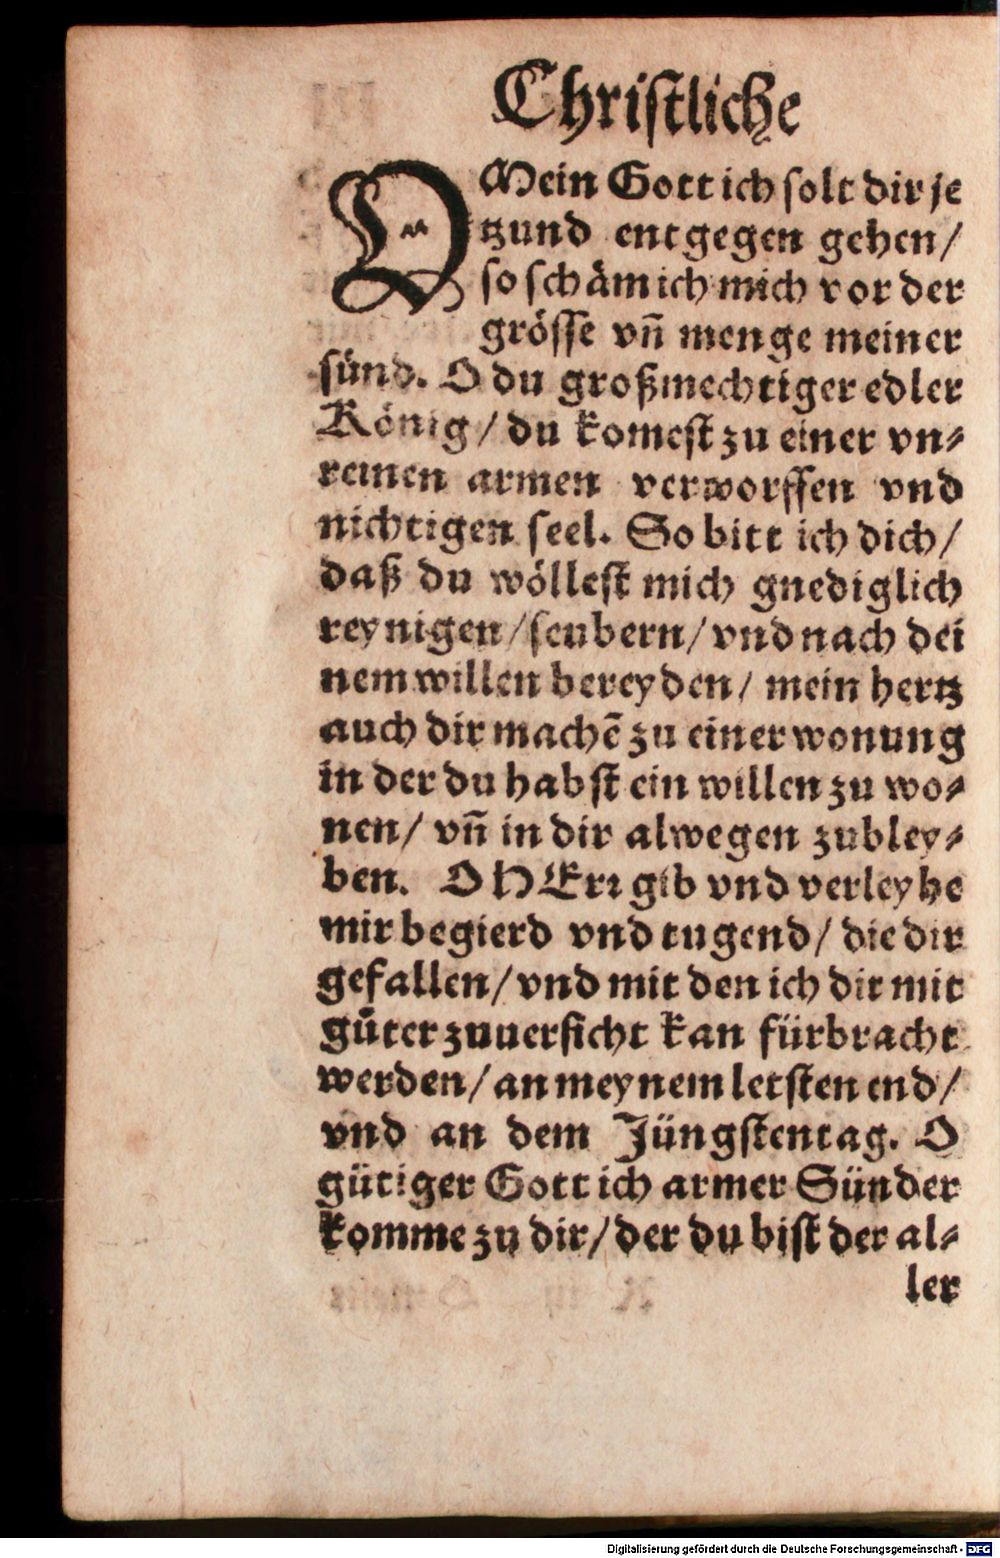 Christliche
O Mein Gott ich solt dir je
tzund entgegen gehen/
so schäm ich mich vor der
grösse vñ menge meiner
sünd. O du großmechtiger edler
König/ du komest zu einer vn⸗
reinen armen verworffen vnd
nichtigen seel. So bitt ich dich/
daß du wöllest mich gnediglich
reynigen/ seubern/ vnd nach dei
nem willen bereyden/ mein hertz
auch dir machẽ zu einer wonung
in der du habst ein willen zu wo⸗
nen/ vñ in dir alwegen zubley⸗
ben. O HErr gib vnd verleyhe
mir begierd vnd tugend/ die dir
gefallen/ vnd mit den ich dir mit
gůter zuuersicht kan fürbracht
werden/ an meynem letsten end/
vnd an dem Jüngstentag. O
gütiger Gott ich armer Sünder
komme zu dir/ der du bist der al⸗
ler
Digitalisierung gefördert durch die Deutsche Forschungsgemeinschaft - DFG